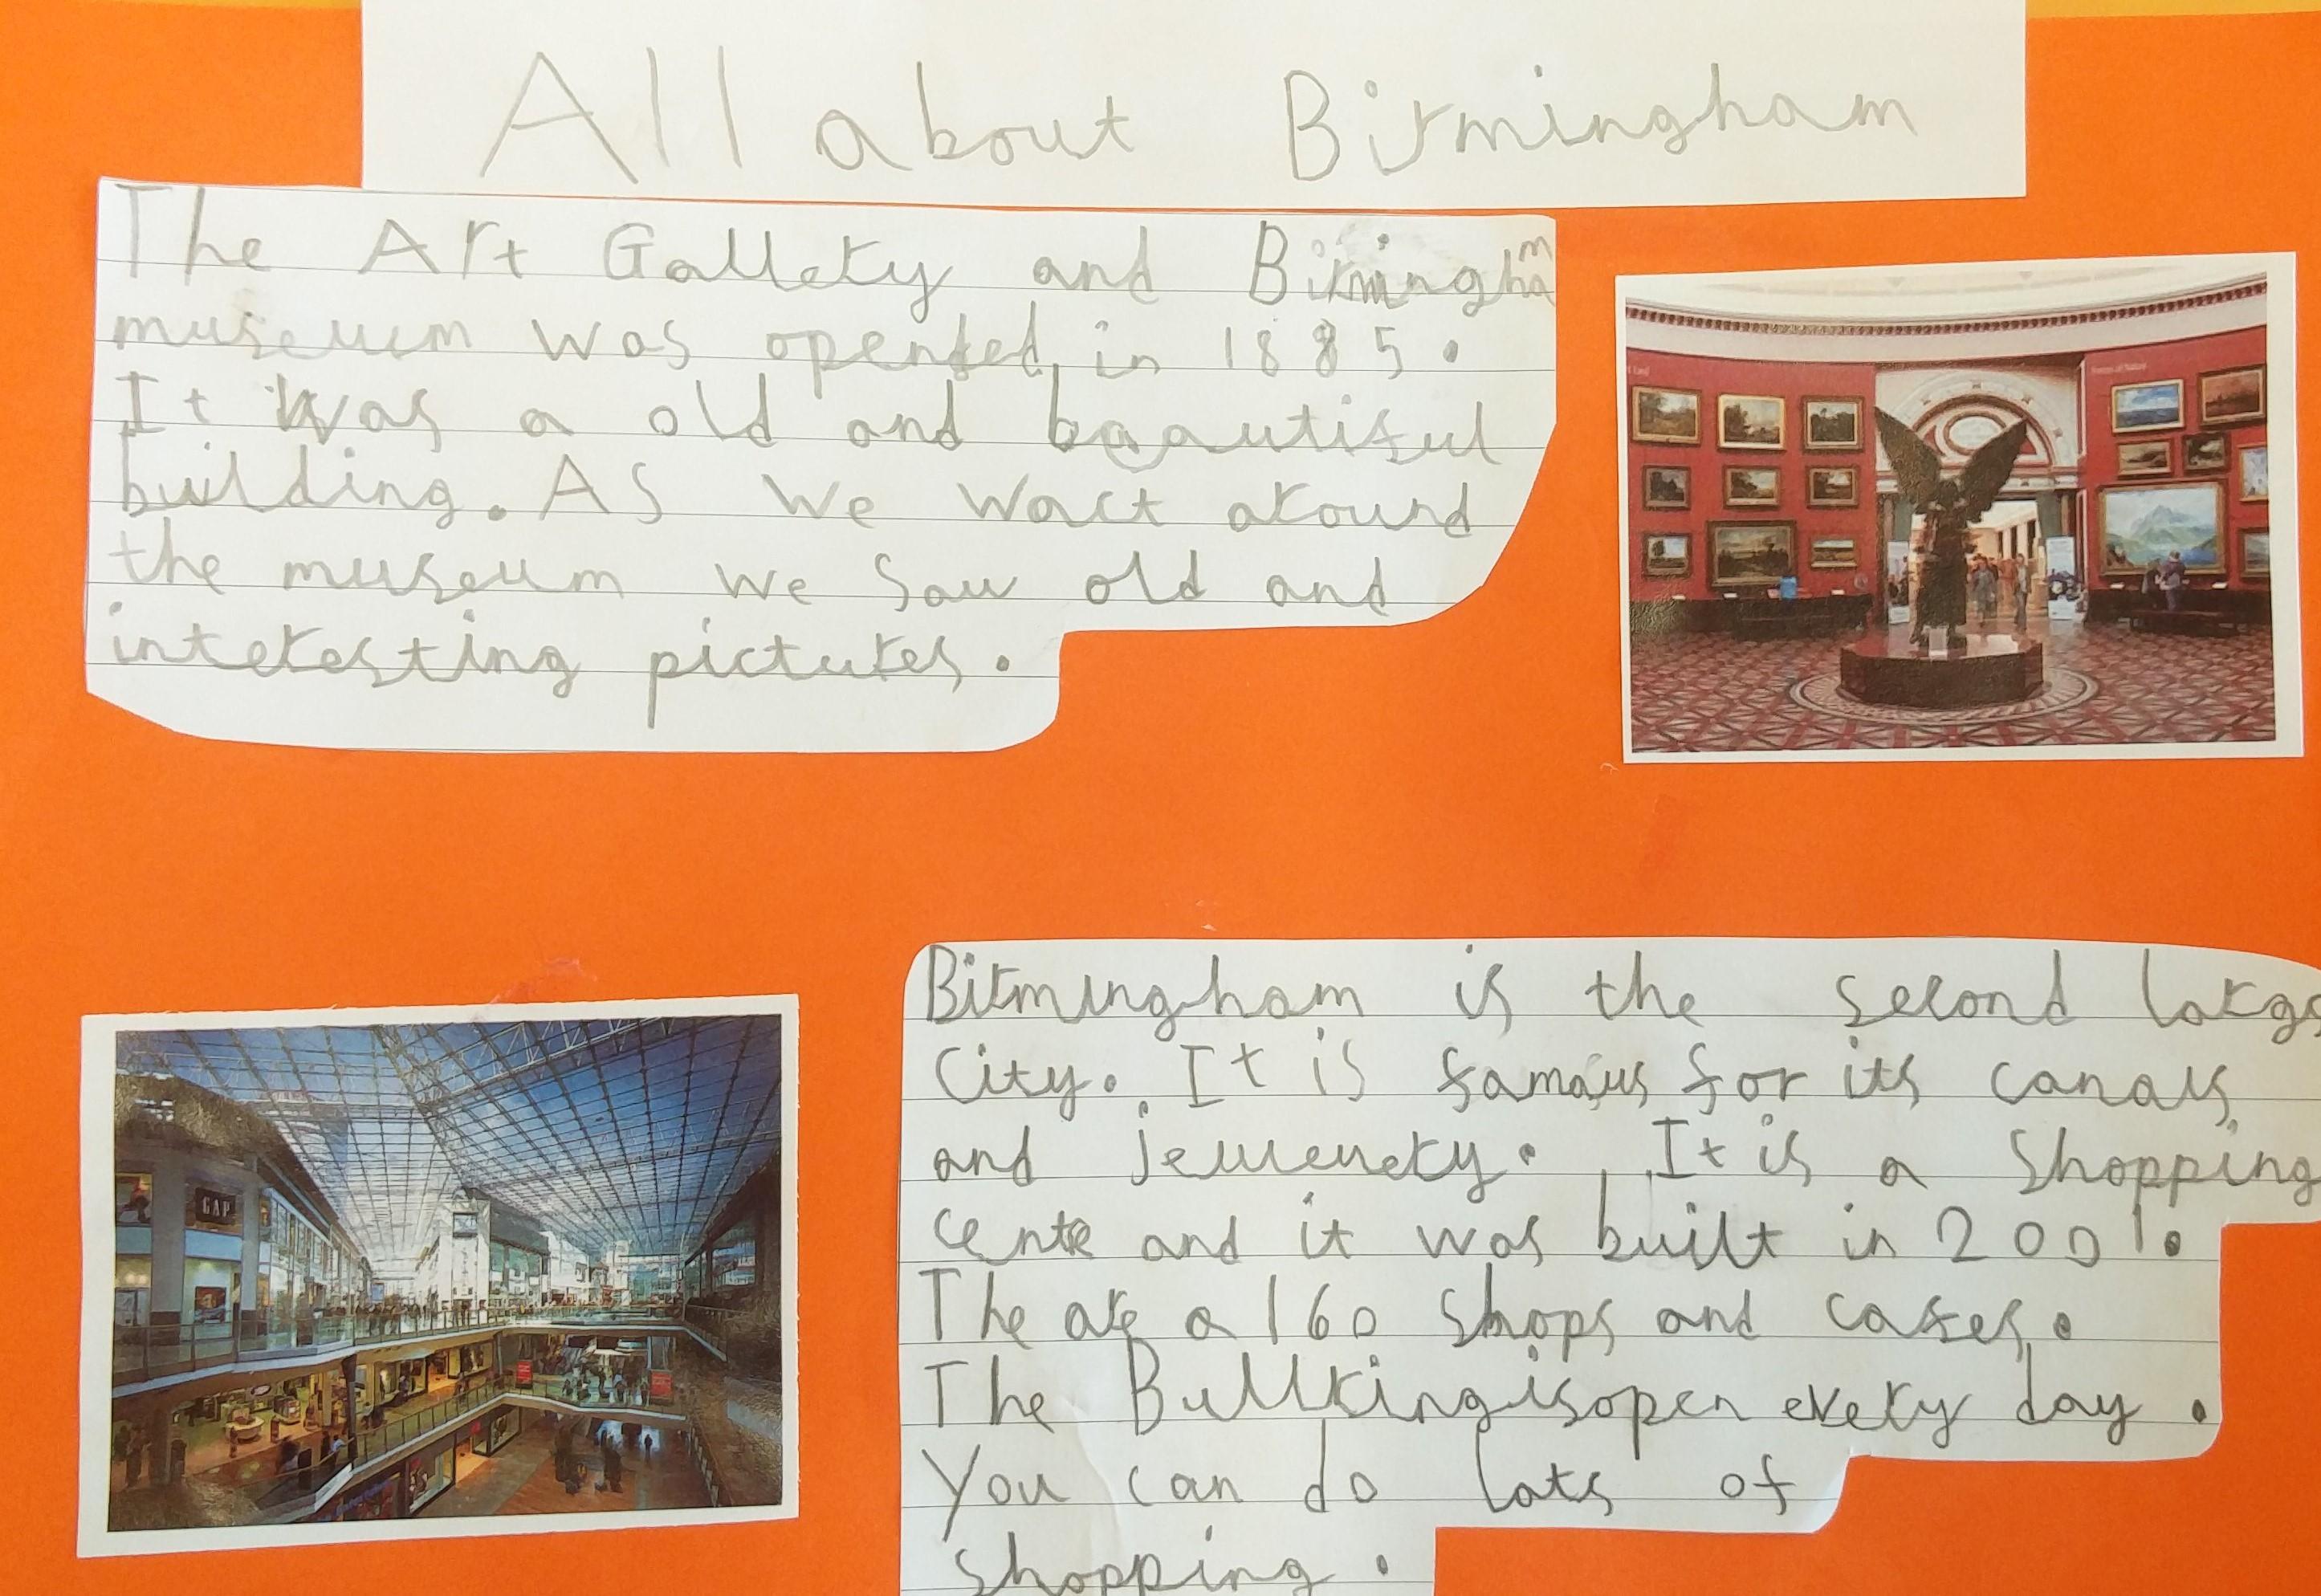 All about Birmingham
The Art Gallery and Birmingham
museum was opented in 1885.
It was a old and baautiful
building. As we wact around
the museum we saw old and
interesting pictures.
Birmingham is the second large
City. It is famous for its canals
and jewenery. It is a shopping
cente and it was built in 2001.
The are a 160 shops and cafes.
The Bullking is open every day.
You can do lots of
shopping.
GAP